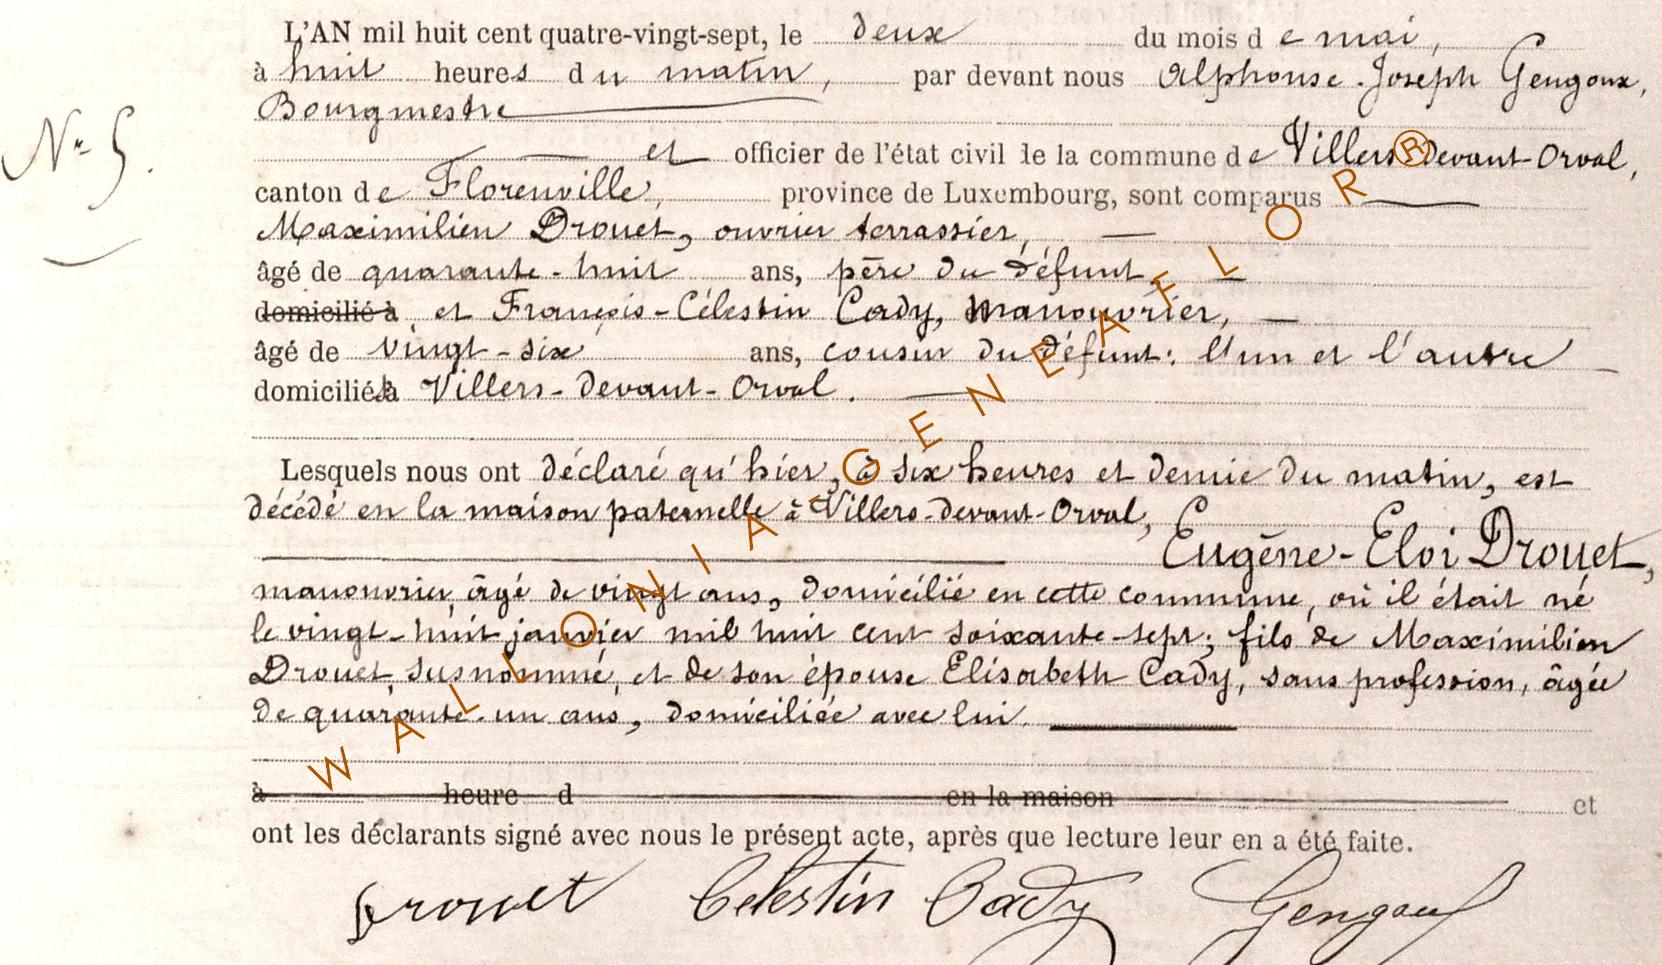 L'AN mil huit cent quatre-vingt-sept, le deux du mois de mai,
à huit heures du matin, par devant nous Alphonse-Joseph Gengoux,
Bourgmestre
Nr 5.
et officier de l'état civil de la commune de Villers-devant-Orval,
canton de Florenville, province de Luxembourg, sont comparus
Maximilien Drouet, ouvrier terrassier,
âgé de quarante-huit ans, père du défunt,
domicilié à, et François-Célestin Cady, manouvrier,
âgé de vingt-six ans, cousin du défunt: l'un et l'autre
domiciliés à Villers-devant-Orval.
Lesquels nous ont déclaré qu'hier, à six heures et demie du matin, est
décédé en la maison paternelle à Villers-devant-Orval,
Eugène-Eloi Drouet,
manouvrier, âgé de vingt ans, domicilié en cette commune, où il était né
le vingt-huit janvier mil huit cent soixante-sept; fils de Maximilien
Drouet, susnommé, et de son épouse Elisabeth Cady, sans profession, âgée
de quarante-un ans, domiciliée avec lui.
à heure d en la maison et
ont les déclarants signé avec nous le présent acte, après que lecture leur en a été faite.
Drouet Celestin Cady Gengoux
WALLONIA-GENEAFLOR®